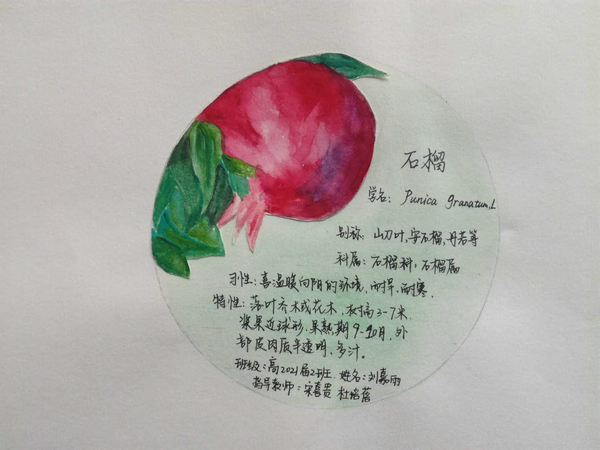 石榴
学名: Punica granatum, L
别称: 山力叶, 安石榴, 丹若等
科属: 石榴科, 石榴属
习性: 喜温暖向阳的环境, 耐旱, 耐寒.
特性: 落叶乔木或花木, 树高3-7米.
浆果近球形, 果熟期9-10月, 外
部皮肉质半透明, 多汁.
班级: 高2021届2班 姓名: 刘嘉雨
指导教师: 宋喜贵 杜培蓓